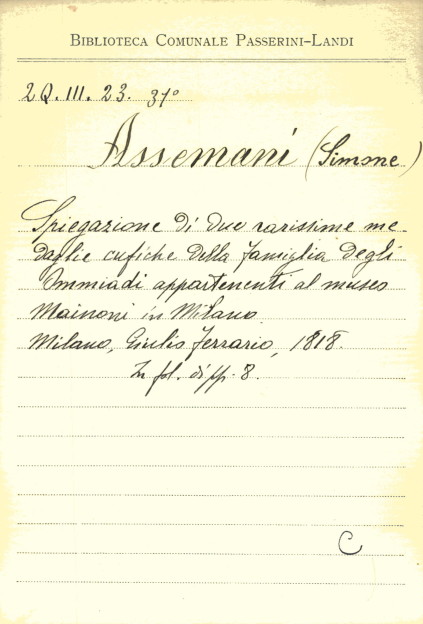 BIBLIOTECA COMUNALE PASSERINI-LANDI
2Q. III. 23. 31º
Assemani (Simone)
Spiegazione di due rarissime me-
daglie cufiche della famiglia degli
Ommiadi appartenenti al museo
Mainoni in Milano
Milano, Giulio Ferrario, 1818.
In fol. di pp. 8.
C